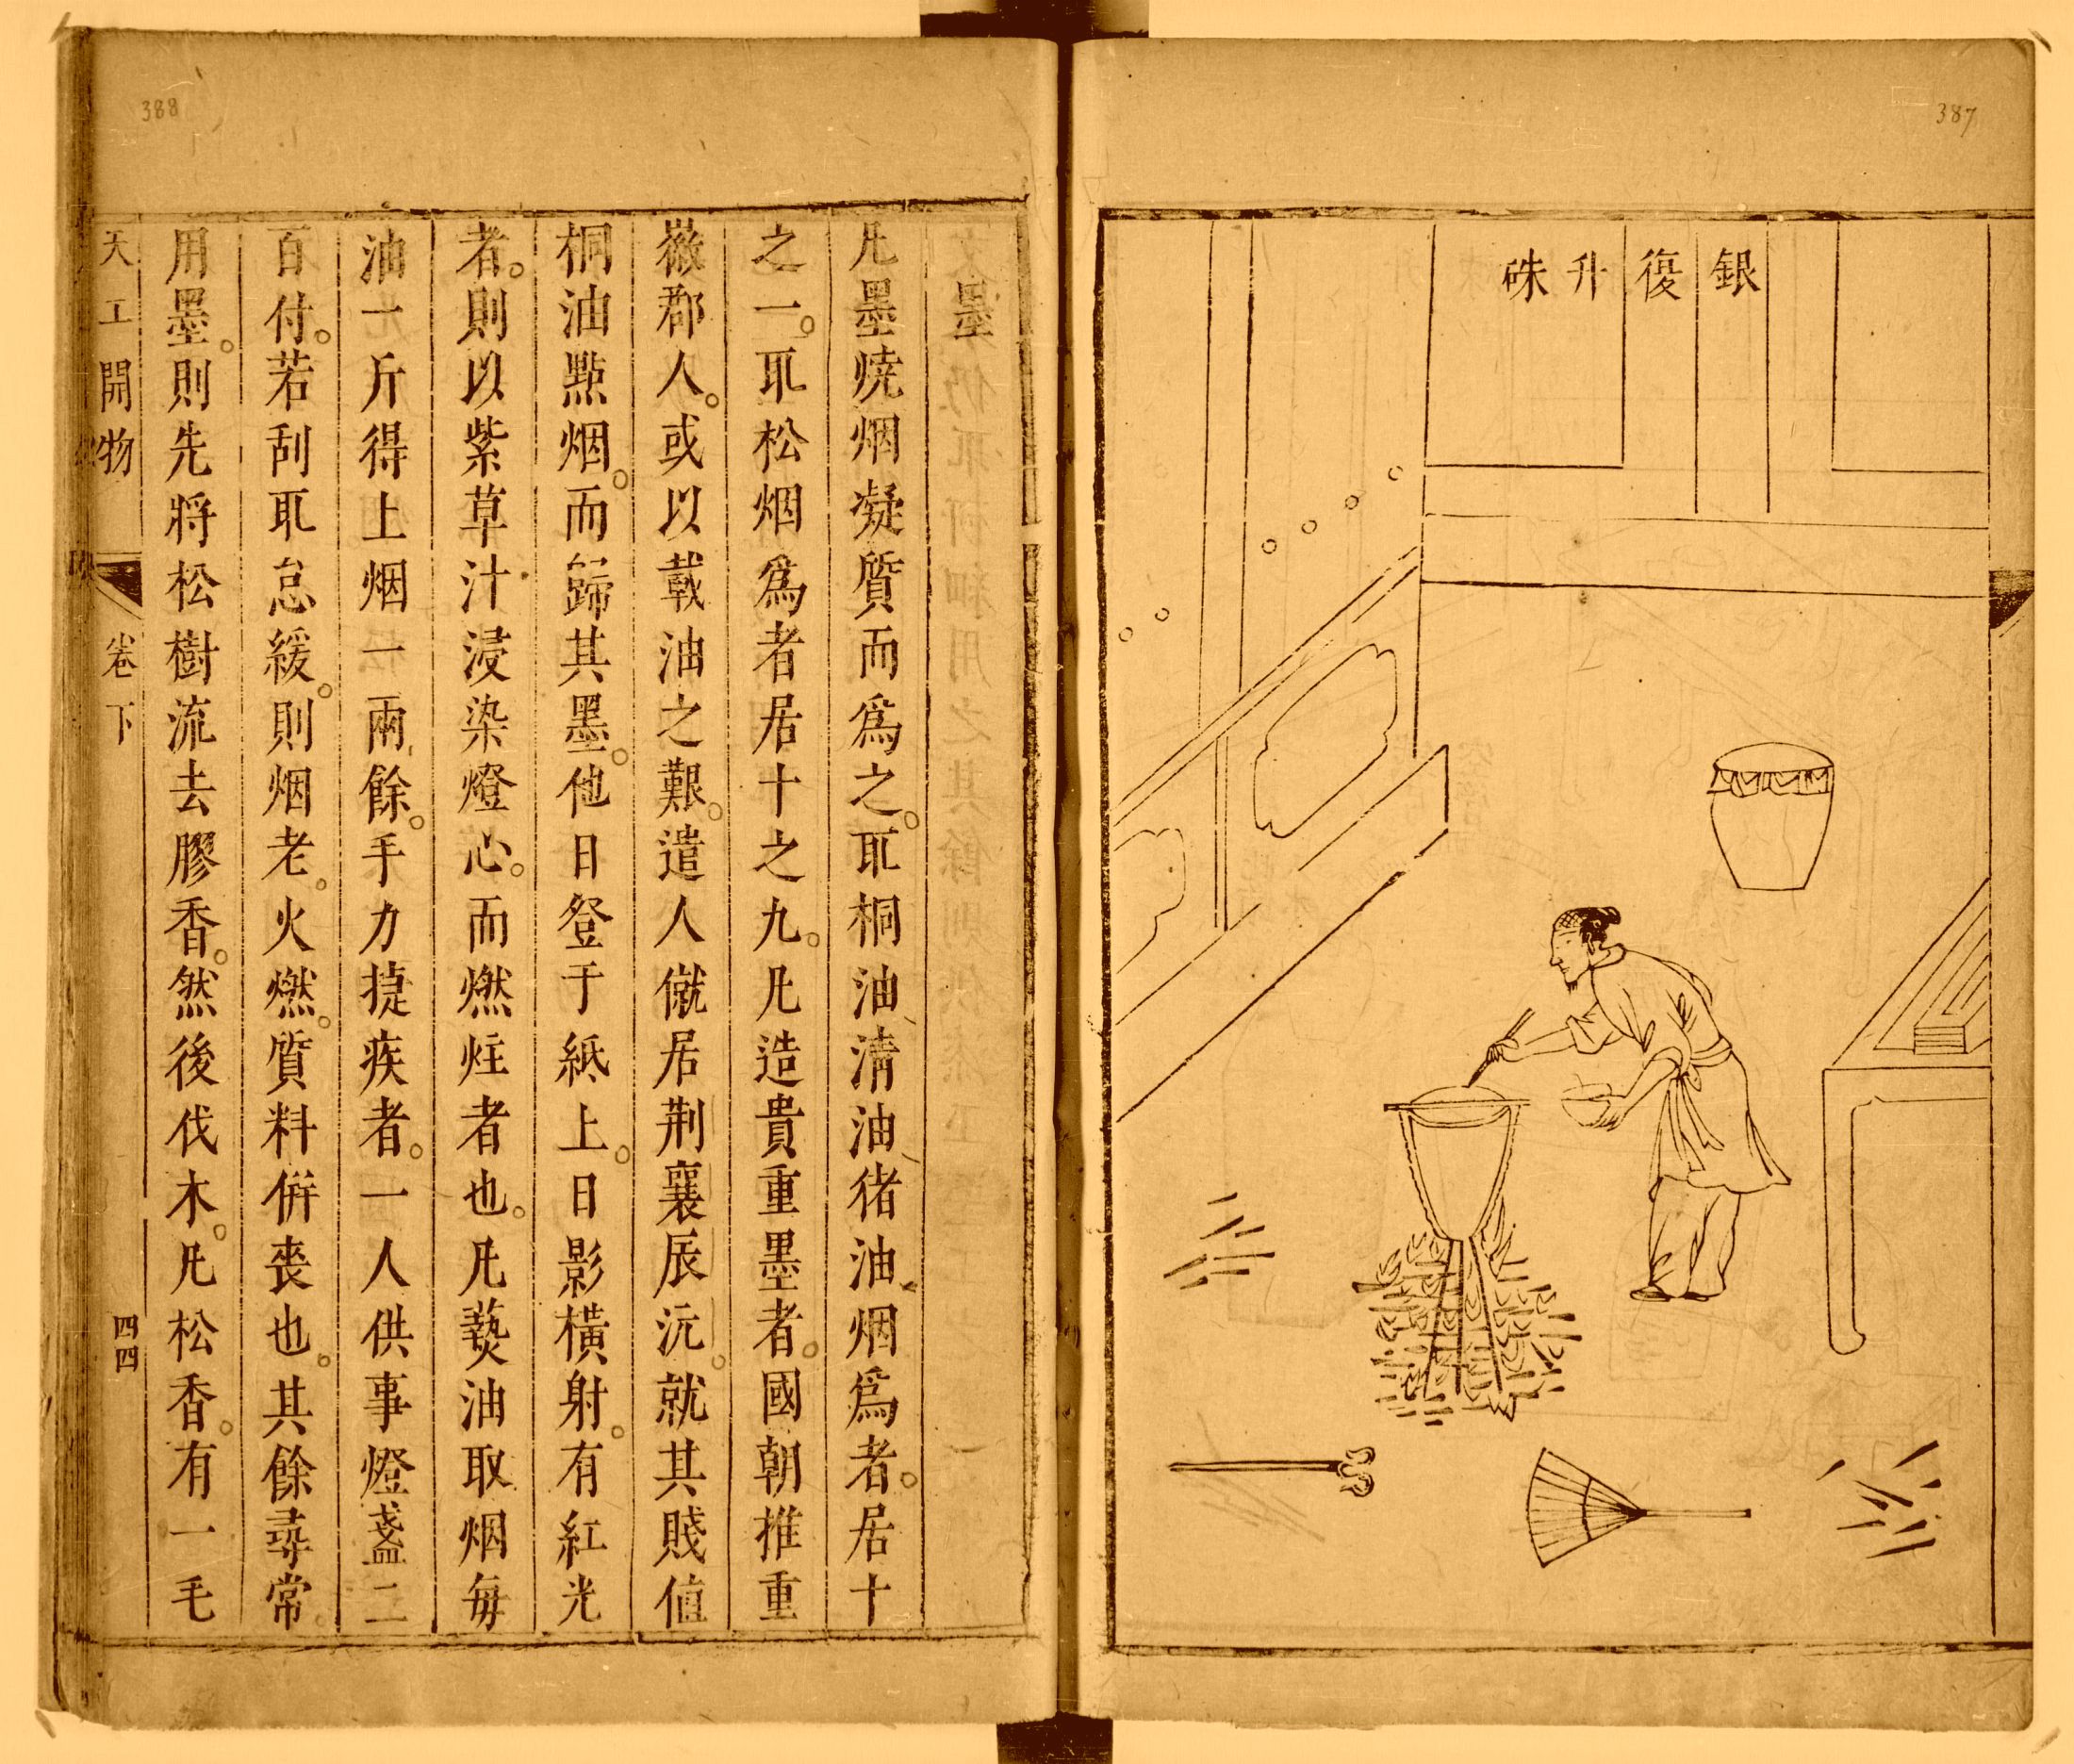 387
銀復升硃
388
墨
凢墨燒烟凝質而爲之。取桐油清油猪油烟爲者。居十
之一。取松烟爲者居十之九。凢造貴重墨者。國朝推重
徽郡人。或以載油之艱。遣人僦居荆襄辰沅。就其賤值
桐油點烟。而歸其墨。他日登于紙上。日影橫射。有紅光
者。則以紫草汁浸染燈心。而燃炷者也。凢爇油取烟每
油一斤得上烟一兩餘。手力㨗疾者。一人供事燈盞二
百付。若刮取怠緩。則烟老。火燃。質料併喪也。其餘尋常。
用墨。則先將松樹流去膠香。然後伐木。凢松香。有一毛
天工開物
卷下
四四